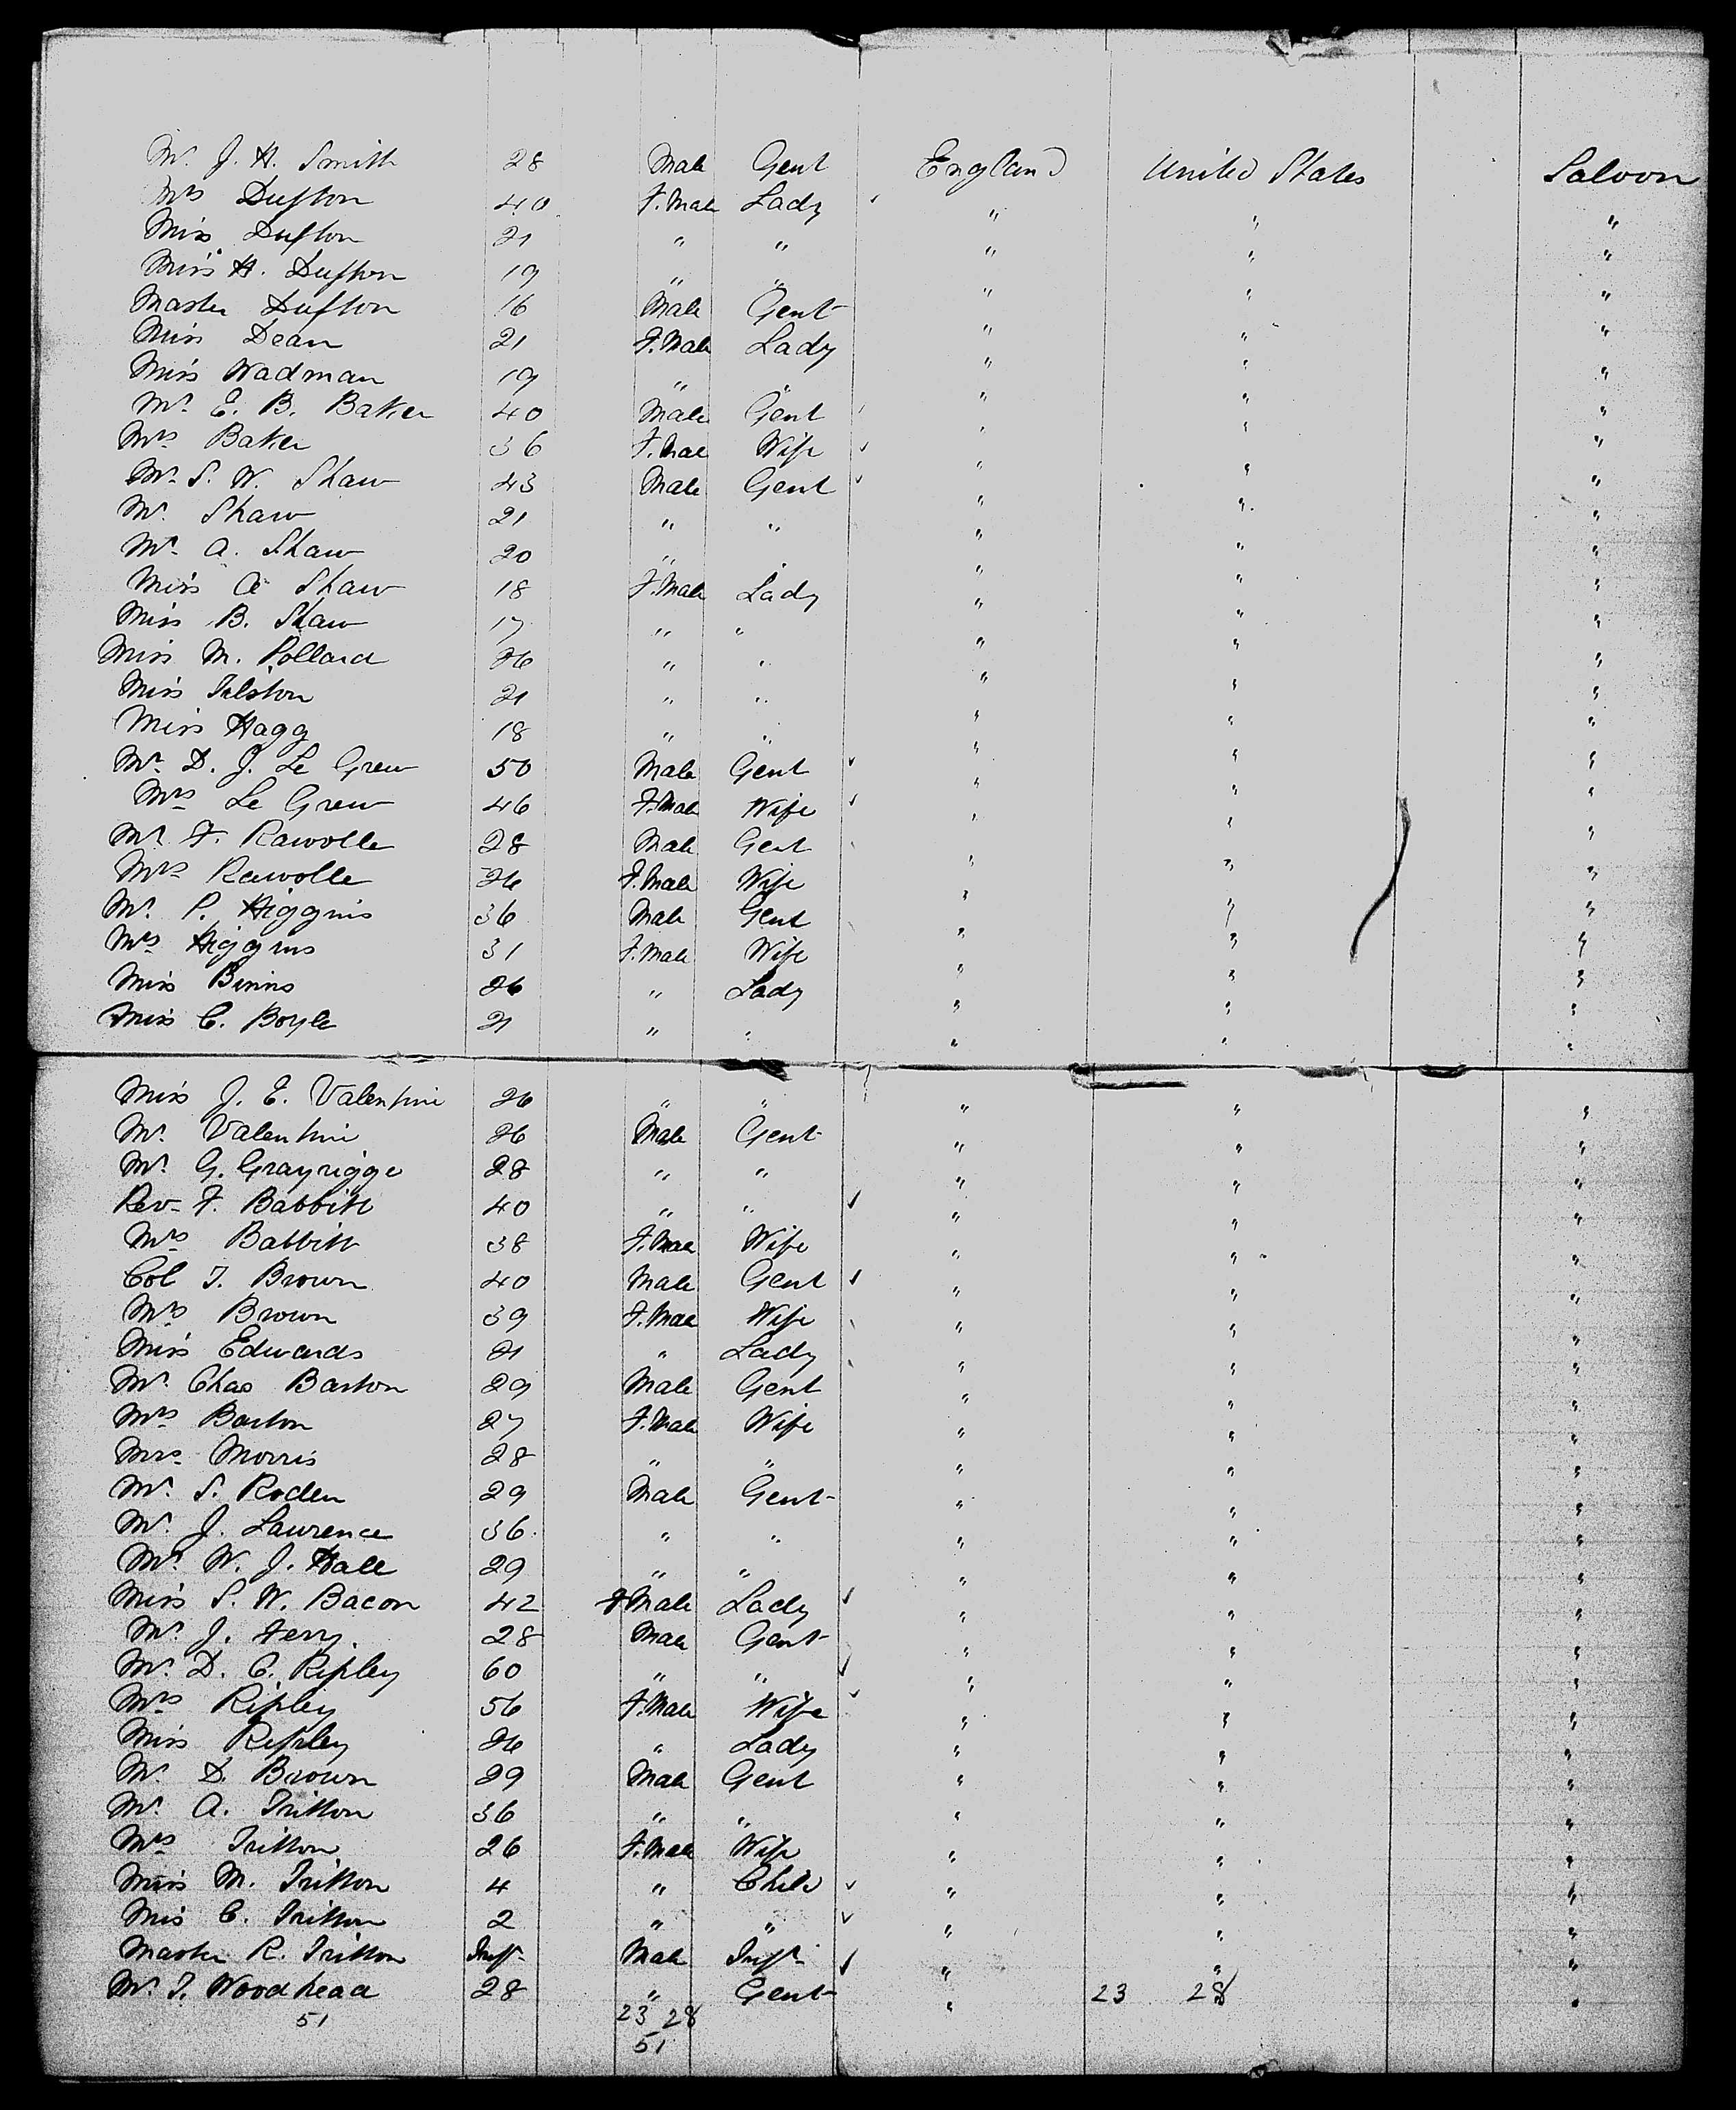 Mr. J. H. Smith 28 Male Gent England United States Saloon
Mrs Dufton 40 F.Male Lady " " "
Miss Dufton 21 " " " " "
Miss H. Dufton 19 " " " " "
Master Dufton 16 Male Gent " " "
Miss Dean 21 F.Male Lady " " "
Miss Wadman 19 " " " " "
Mr. E. B. Baker 40 Male Gent " " "
Mrs Baker 36 F.Male Wife " " "
Mr. S. W. Shaw 43 Male Gent " " "
Mr. Shaw 21 " " " " "
Mr. A. Shaw 20 " " " " "
Miss A Shaw 18 F.Male Lady " " "
Miss B. Shaw 17 " " " " "
Miss M. Pollard 26 " " " " "
Miss Tilston 21 " " " " "
Miss Hagg 18 " " " " "
Mr. D. J. Le Grew 50 Male Gent " " "
Mrs Le Grew 46 F.Male Wife " " "
Mr. F. Rawolle 28 Male Gent " " "
Mrs Rawolle 26 F.Male Wife " " "
Mr. P. Higgins 36 Male Gent " " "
Mrs Higgins 31 F.Male Wife " " "
Miss Binns 26 " Lady " " "
Miss C. Boyle 21 " " " " "
Miss J. E. Valentine 26 " " " " "
Mr. Valentine 26 Male Gent " " "
Mr. G. Grayrigge 28 " " " " "
Rev. F. Babbitt 40 " " " " "
Mrs Babbitt 38 F.Male Wife " " "
Col T. Brown 40 Male Gent " " "
Mrs Brown 39 F.Male Wife " " "
Miss Edwards 21 " Lady " " "
Mr. Chas Barton 29 Male Gent " " "
Mrs Barton 27 F.Male Wife " " "
Mrs Morris 28 " " " " "
Mr. S. Roden 29 Male Gent " " "
Mr. J. Lawrence 36 " " " " "
Mr. W. J. Hall 29 " " " " "
Miss S. W. Bacon 42 F Male Lady " " "
Mr. J. Ferry 28 Male Gent " " "
Mr. D. C. Ripley 60 " " " " "
Mrs Ripley 56 F.Male Wife " " "
Miss Ripley 26 " Lady " " "
Mr. D. Brown 29 Male Gent " " "
Mr. A. Tritton 36 " " " " "
Mrs Tritton 26 F.Male Wife " " "
Miss M. Tritton 4 " Child " " "
Miss C. Tritton 2 " " " " "
Master R. Tritton Inft Male Inft " " "
Mr. T. Woodhead 28 " Gent " 23 28 " "
51 23 28
51